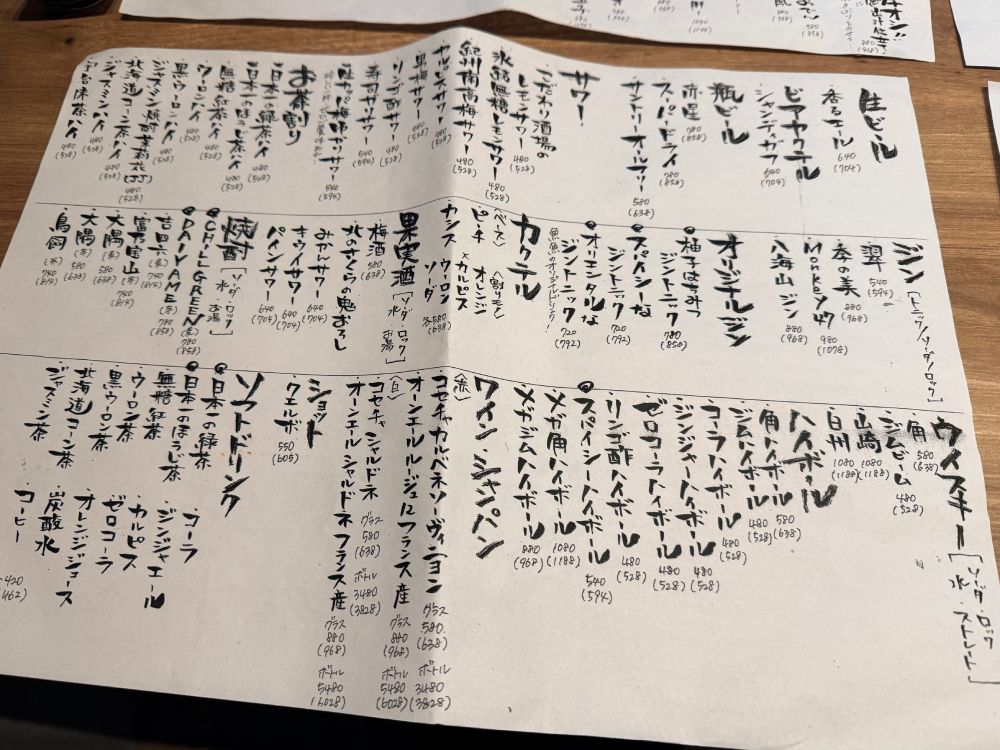 生ビール
・香るエール 640 (704)
ビアカクテル
・シャンディガフ 640 (704)
瓶ビール
・赤星 780 (858)
・スーパードライ 780 (858)
・サントリーオールフリー 580 (638)
サワー
・こだわり酒場の
レモンサワー 480 (528)
・氷結無糖レモンサワー 480 (528)
・紀州南高梅サワー 480 (528)
・カルピスサワー 480 (528)
・黒梅サワー 480 (528)
・リンゴ酢サワー 480 (528)
・寿司サワー 540 (594)
・生カリカリ梅干サワー 540 (594)
お茶割り
・日本一の緑茶ハイ 480 (528)
・日本一のほうじ茶ハイ 480 (528)
・無糖紅茶ハイ 480 (528)
・ウーロンハイ 480 (528)
・黒ウーロンハイ 480 (528)
・ジャスミン焼酎茉莉花 480 (528)
・北海道コーン茶ハイ 480 (528)
・ジャスミンハイ 480 (528)
・宇治抹茶ハイ 480 (528)
ジン [トニック/ソーダ/ロック]
・翠 540 (594)
・季の美 880 (968)
・Monkey 47 980 (1078)
・八海山ジン 880 (968)
オリジナルジン
・柚子はちみつ
ジントニック 780 (858)
・スパイシーな
ジントニック 720 (792)
・オリエンタルな
ジントニック 720 (792)
カクテル
〈ベース〉 〈割りモノ〉
・ピーチ オレンジ
・カシス × カルピス
ウーロン
ソーダ 各580 (638)
果実酒 [ソーダ ロック 水 お湯]
・梅酒 580 (638)
・北のさくらの鬼おろし
・みかんサワー 640 (704)
・キウイサワー 640 (704)
・パインサワー 640 (704)
焼酎 [ソーダ ロック 水 お湯]
・CHILL GREEN(麦) 780 (858)
・DAIYAME(芋) 780 (858)
・吉四六(麦) 740 (814)
・富乃宝山(芋) 740 (814)
・大隅(麦) 580 (638)
・大隅(芋) 580 (638)
・鳥飼(米) 740 (814)
ウイスキー [ソーダ ロック 水 ストレート]
・角 580 (638)
・ジムビーム 480 (528)
・山崎 1080 (1188)
・白州 1080 (1188)
ハイボール
・角ハイボール 580 (638)
・ジムハイボール 480 (528)
・コーラハイボール 480 (528)
・ジンジャーハイボール 480 (528)
・ゼロコーラハイボール 480 (528)
・リンゴ酢ハイボール 480 (528)
・スパイシーハイボール 540 (594)
・メガ角ハイボール 1080 (1188)
・メガジムハイボール 880 (968)
ワイン・シャンパン
〈赤〉
・コセチャカルベネソーヴィニヨン グラス 580 (638) ボトル 3480 (3828)
・オーンエールルージュ フランス産 グラス 880 (968) ボトル 5480 (6028)
〈白〉
・コセチャ シャルドネ グラス 580 (638) ボトル 3480 (3828)
・オーンエールシャルドネ フランス産 グラス 880 (968) ボトル 5480 (6028)
ショット
・クエルボ 550 (605)
ソフトドリンク
・日本一の緑茶
・日本一のほうじ茶
・無糖紅茶
・ウーロン茶
・黒ウーロン茶
・北海道コーン茶
・ジャスミン茶
・コーラ
・ジンジャエール
・カルピス
・ゼロコーラ
・オレンジジュース
・炭酸水
・コーヒー
420 (462)